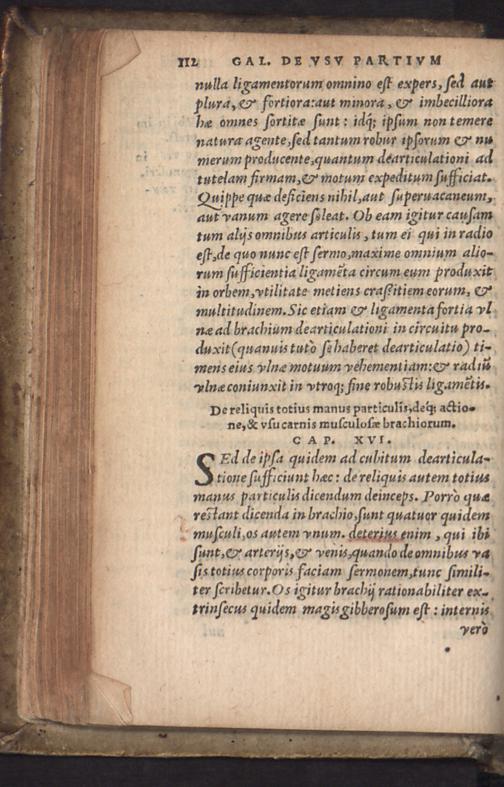 112 GAL. DE VSV PARTIVM
nulla ligamentorum omnino eſt expers, ſed aut
plura, & fortiora: aut minora, & imbecilliora
hæ omnes ſortitæ ſunt: idq́; ipſum non temere
natura agente, ſed tantum robur ipſorum & nu
merum producente, quantum dearticulationi ad
tutelam firmam, & motum expeditum ſufficiat.
Quippe quæ deficiens nihil, aut ſuperuacaneum,
aut vanum agere ſoleat. Ob eam igitur cauſam
tum alijs omnibus articulis, tum ei qui in radio
eſt, de quo nunc eſt ſermo, maxime omnium alio-
rum ſufficientia ligamẽta circum eum produxit
in orbem, vtilitate metiens craſsitiem eorum, &
multitudinem. Sic etiam & ligamenta fortia vl
næ ad brachium dearticulationi in circuitu pro-
duxit (quanuis tutò ſe haberet dearticulatio) ti-
mens eius vlnæ motuum vehementiam: & radiũ
vlnæ coniunxit in vtroq; fine robuſtis ligamẽtis.
De reliquis totius manus particulis, deq́; actio-
ne, & vſu carnis muſculoſæ brachiorum.
CAP. XVI.
SEd de ipſa quidem ad cubitum dearticula-
tione ſufficiunt hæc: de reliquis autem totius
manus particulis dicendum deinceps. Porrò quæ
reſtant dicenda in brachio, ſunt quatuor quidem
muſculi, os autem vnum. deterius enim, qui ibi
ſunt, & arterijs, & venis, quando de omnibus va
ſis totius corporis faciam ſermonem, tunc ſimili-
ter ſcribetur. Os igitur brachij rationabiliter ex-
trinſecus quidem magis gibberoſum eſt: internis
verò